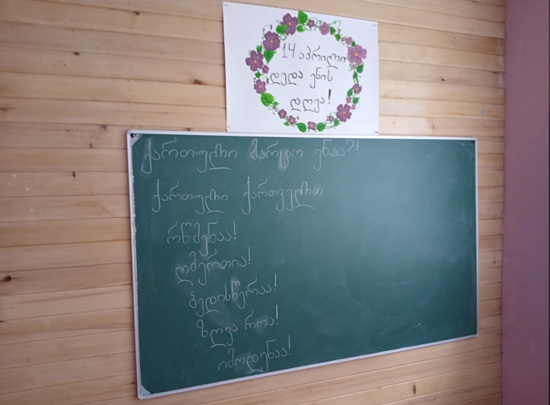 14 აპრილი
დედა ენის
დღეა!
ქართული მარტო ენაა?!
ქართული ქართველთ
რწმენაა!
ღმერთია!
ბედისწერაა!
ზღვა როა!
იმოდენაა!